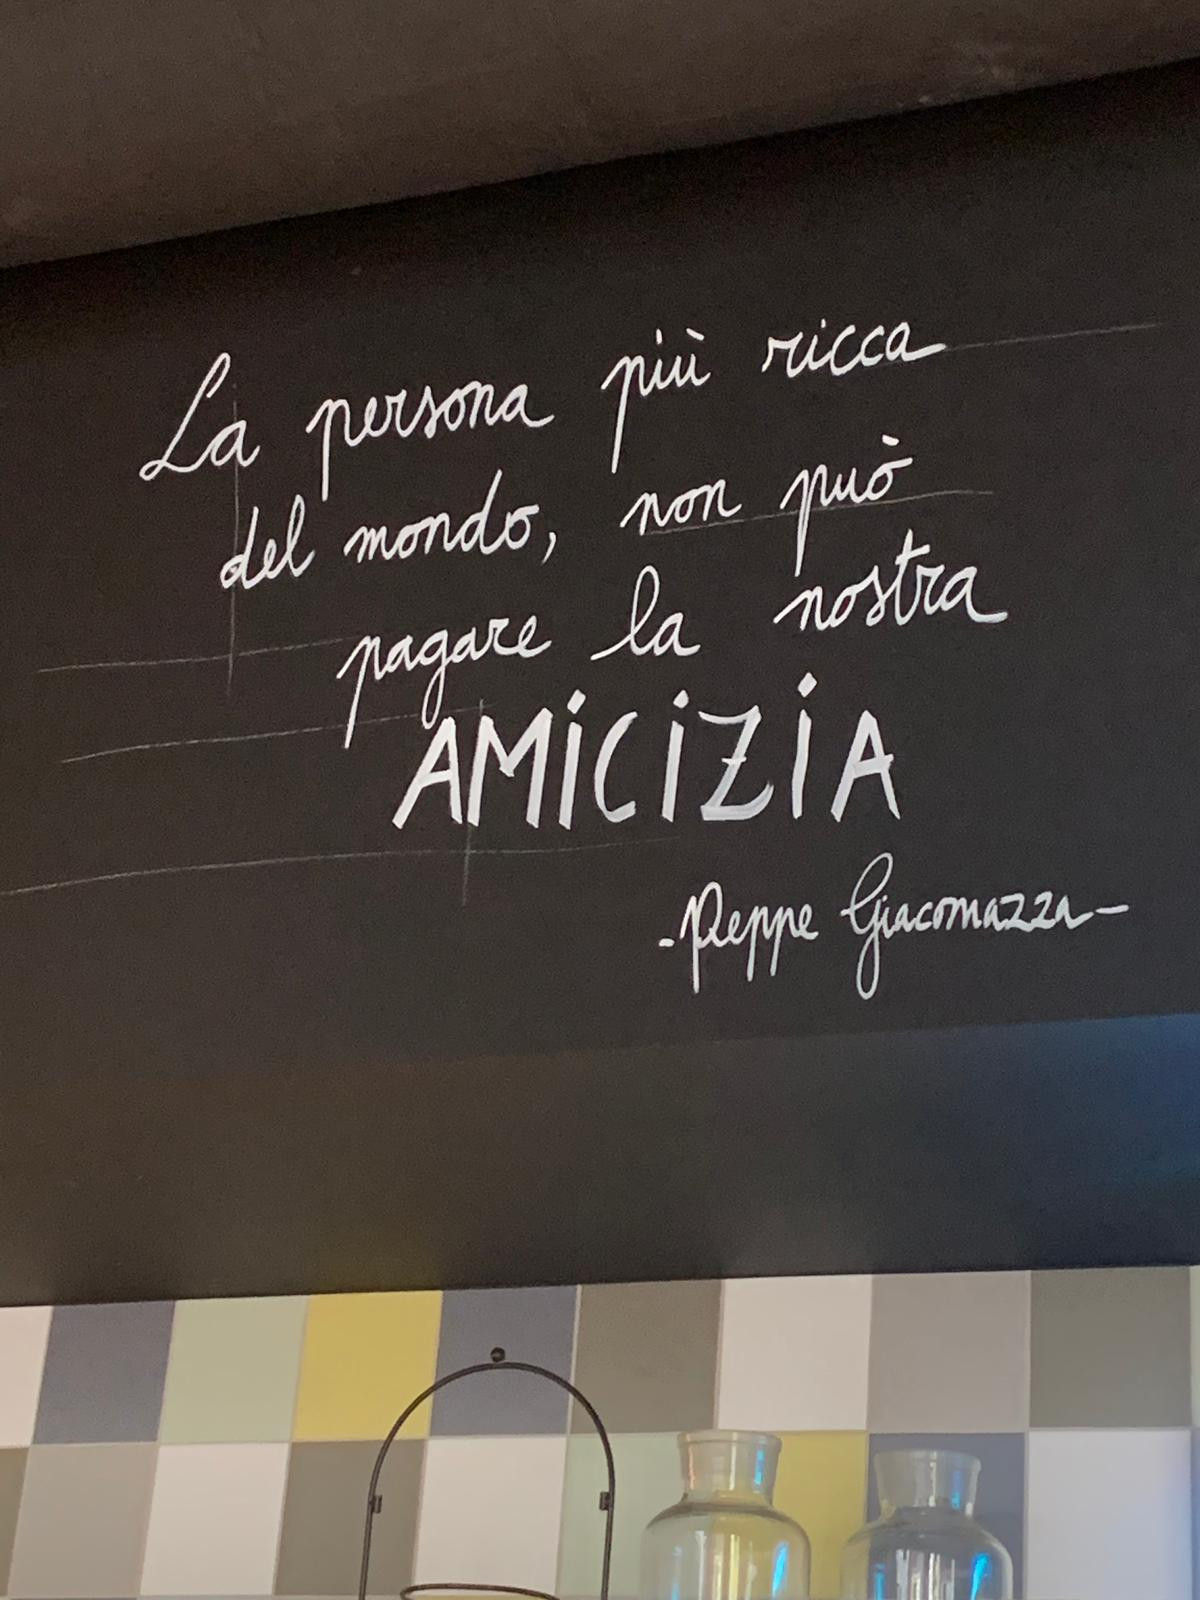 La persona più ricca
del mondo, non può
pagare la nostra
AMiCiZiA
-Peppe Giacomazza-